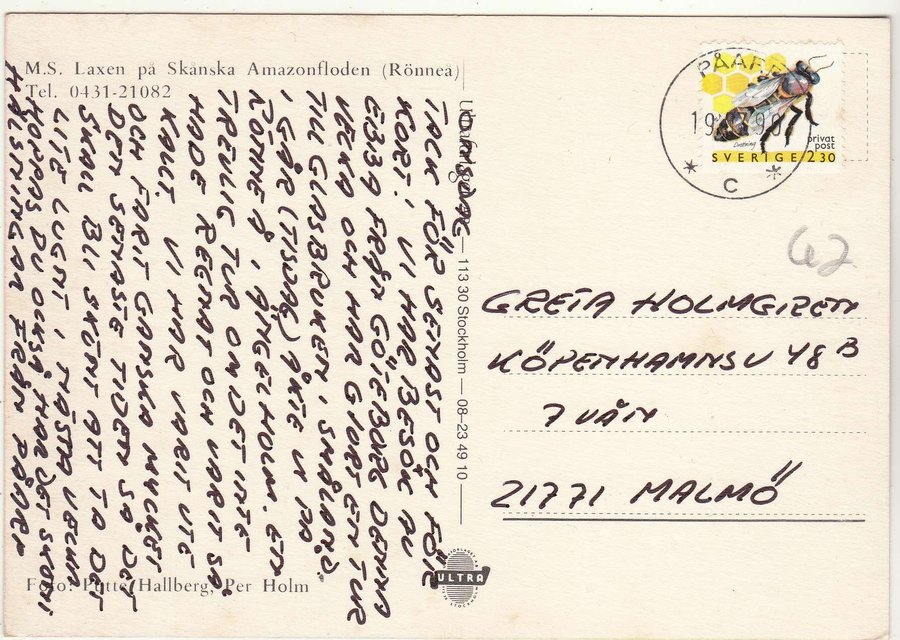 M.S. Laxen på Skånska Amazonfloden (Rönneå)
Tel. 0431-21082
ONSDAG
TACK FÖR SENAST OCH FÖR
KORT. VI HAR BESÖK AV
EBBA FRÅN GÖTEBORG DENNA
VECKA OCH HAR GJORT EN TUR
TILL GLASBRUKEN I SMÅLAND.
I GÅR (TISDAG) ÅKTE VI PÅ
RÖNNE Å I ÄNGELHOLM. EN
TREVLIG TUR OM DET INTE
HADE REGNAT OCH VARIT SÅ
KALLT. VI HAR VARIT UTE
OCH FARIT GANSKA MYCKET
DEN SENASTE TIDEN SÅ DET
SKALL BLI SKÖNT ATT TA DET
LITE LUGNT I NÄSTA VECKA
HOPPAS DU OCKSÅ HAR DET SKÖNT
HÄLSNINGAR FRÅN PÅARP
Foto: Putte Hallberg, Per Holm
113 30 Stockholm — 08-23 49 10
ULTRA
PÅARP
19 90
C
Drottning
privat
post
SVERIGE 2.30
62
GRETA HOLMGREN
KÖPENHAMNSV 48 B
7 VÅN
21771 MALMÖ